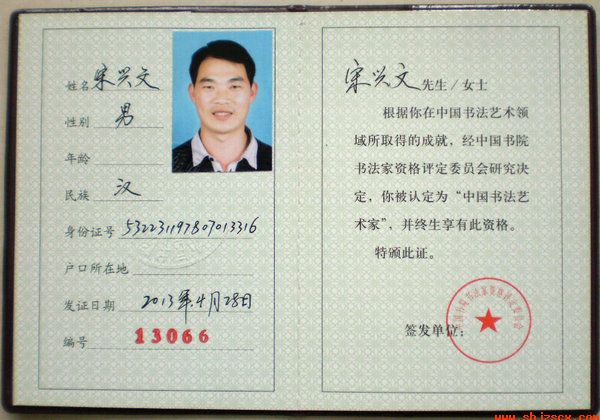 姓名 宋兴文
性别 男
年龄
民族 汉
身份证号 532231197807013316
户口所在地
发证日期 2013年.4月28日
编号 13066
宋兴文 先生/女士
根据你在中国书法艺术领
域所取得的成就，经中国书院
书法家资格评定委员会研究决
定，你被认定为“中国书法艺
术家”，并终生享有此资格。
特颁此证。
签发单位：
中国书院书法家资格评定委员会